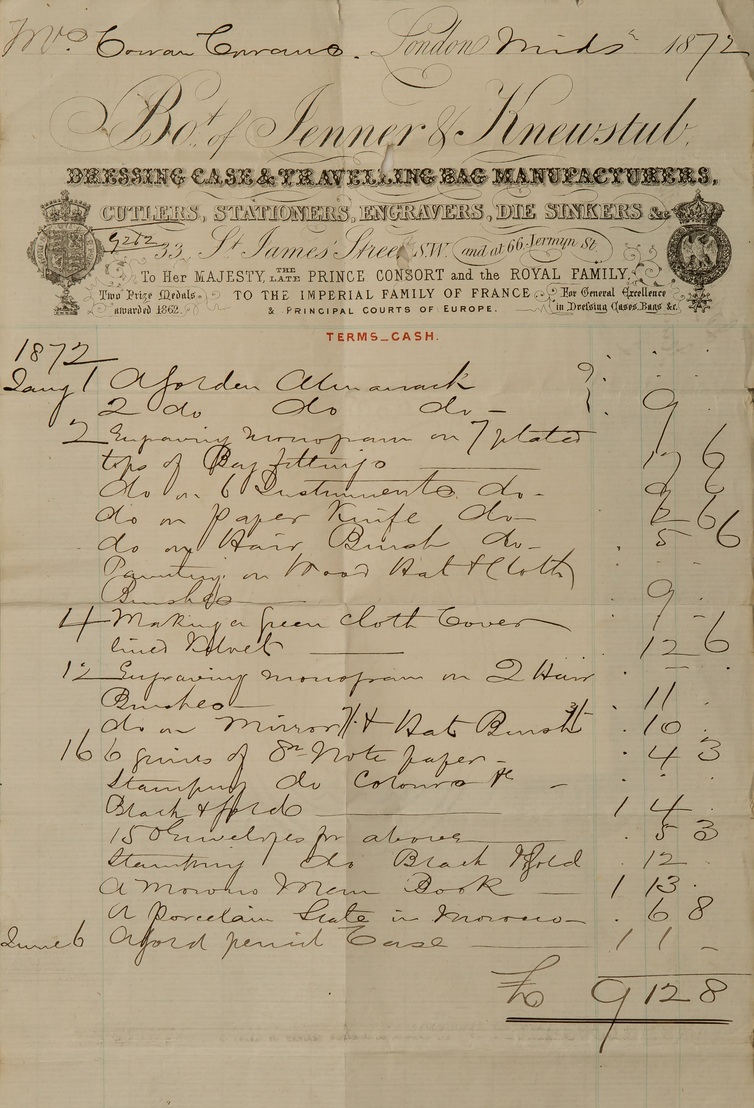 London Mids 1872
Bot. of Jenner & Knewstub.
DRESSING CASE & TRAVELLING BAG MANUFACTURERS,
CUTLERS, STATIONERS, ENGRAVERS, DIE SINKERS &c
33 St James' Street S.W. and at 66 Jermyn St.
To Her MAJESTY, THE LATE PRINCE CONSORT and the ROYAL FAMILY,
Two Prize Medals awarded 1862. TO THE IMPERIAL FAMILY OF FRANCE For General Excellence in Dressing Cases, Bags &c.
& PRINCIPAL COURTS OF EUROPE.
TERMS_CASH.
1872
Jany 1 Almanack
2 do do do - 9
2 Engraving Monogram on 7 plated
tops of Bag fittings 17 6
do on 6 Instruments do - 9
do on paper Knife do - 2 6
do on Hair Brush do - 5 6
Painting on Wood Hat & Cloth
Brushes 9 -
4 Making a Green Cloth Cover
lined Velvet 12 6
12 Engraving monogram on 2 Hair
Brushes 11
do on Mirror & Hat Brush 10
16 6 quires of 8vo Note paper - 4 3
Stamping do Colours &c -
Black & Gold 1 4
150 Envelopes for above 5 3
Stamping do Black & Gold 12
A Morocco Mem Book 1 13
A Porcelain Slate in Morocco 6 8
June 6 A Gold pencil Case 1 1 -
£ 9 12 8